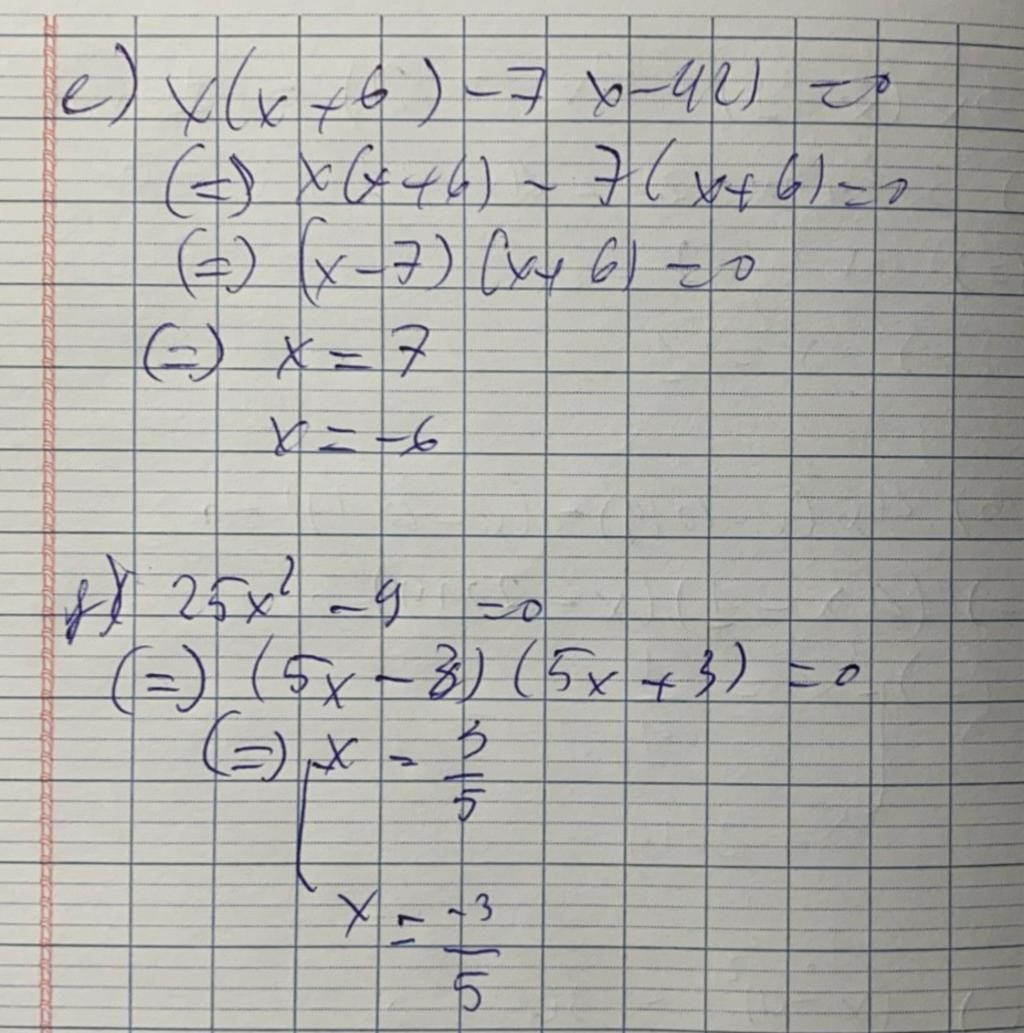 e) x(x+6) -7 x-42) =0
(=) x(x+6) - 7(x+6)=0
(=) (x-7) (x+6) =0
(=) x = 7
x = -6
f) 25x² -9 =0
(=) (5x-3) (5x+3) =0
(=) [x = 3/5
x = -3/5